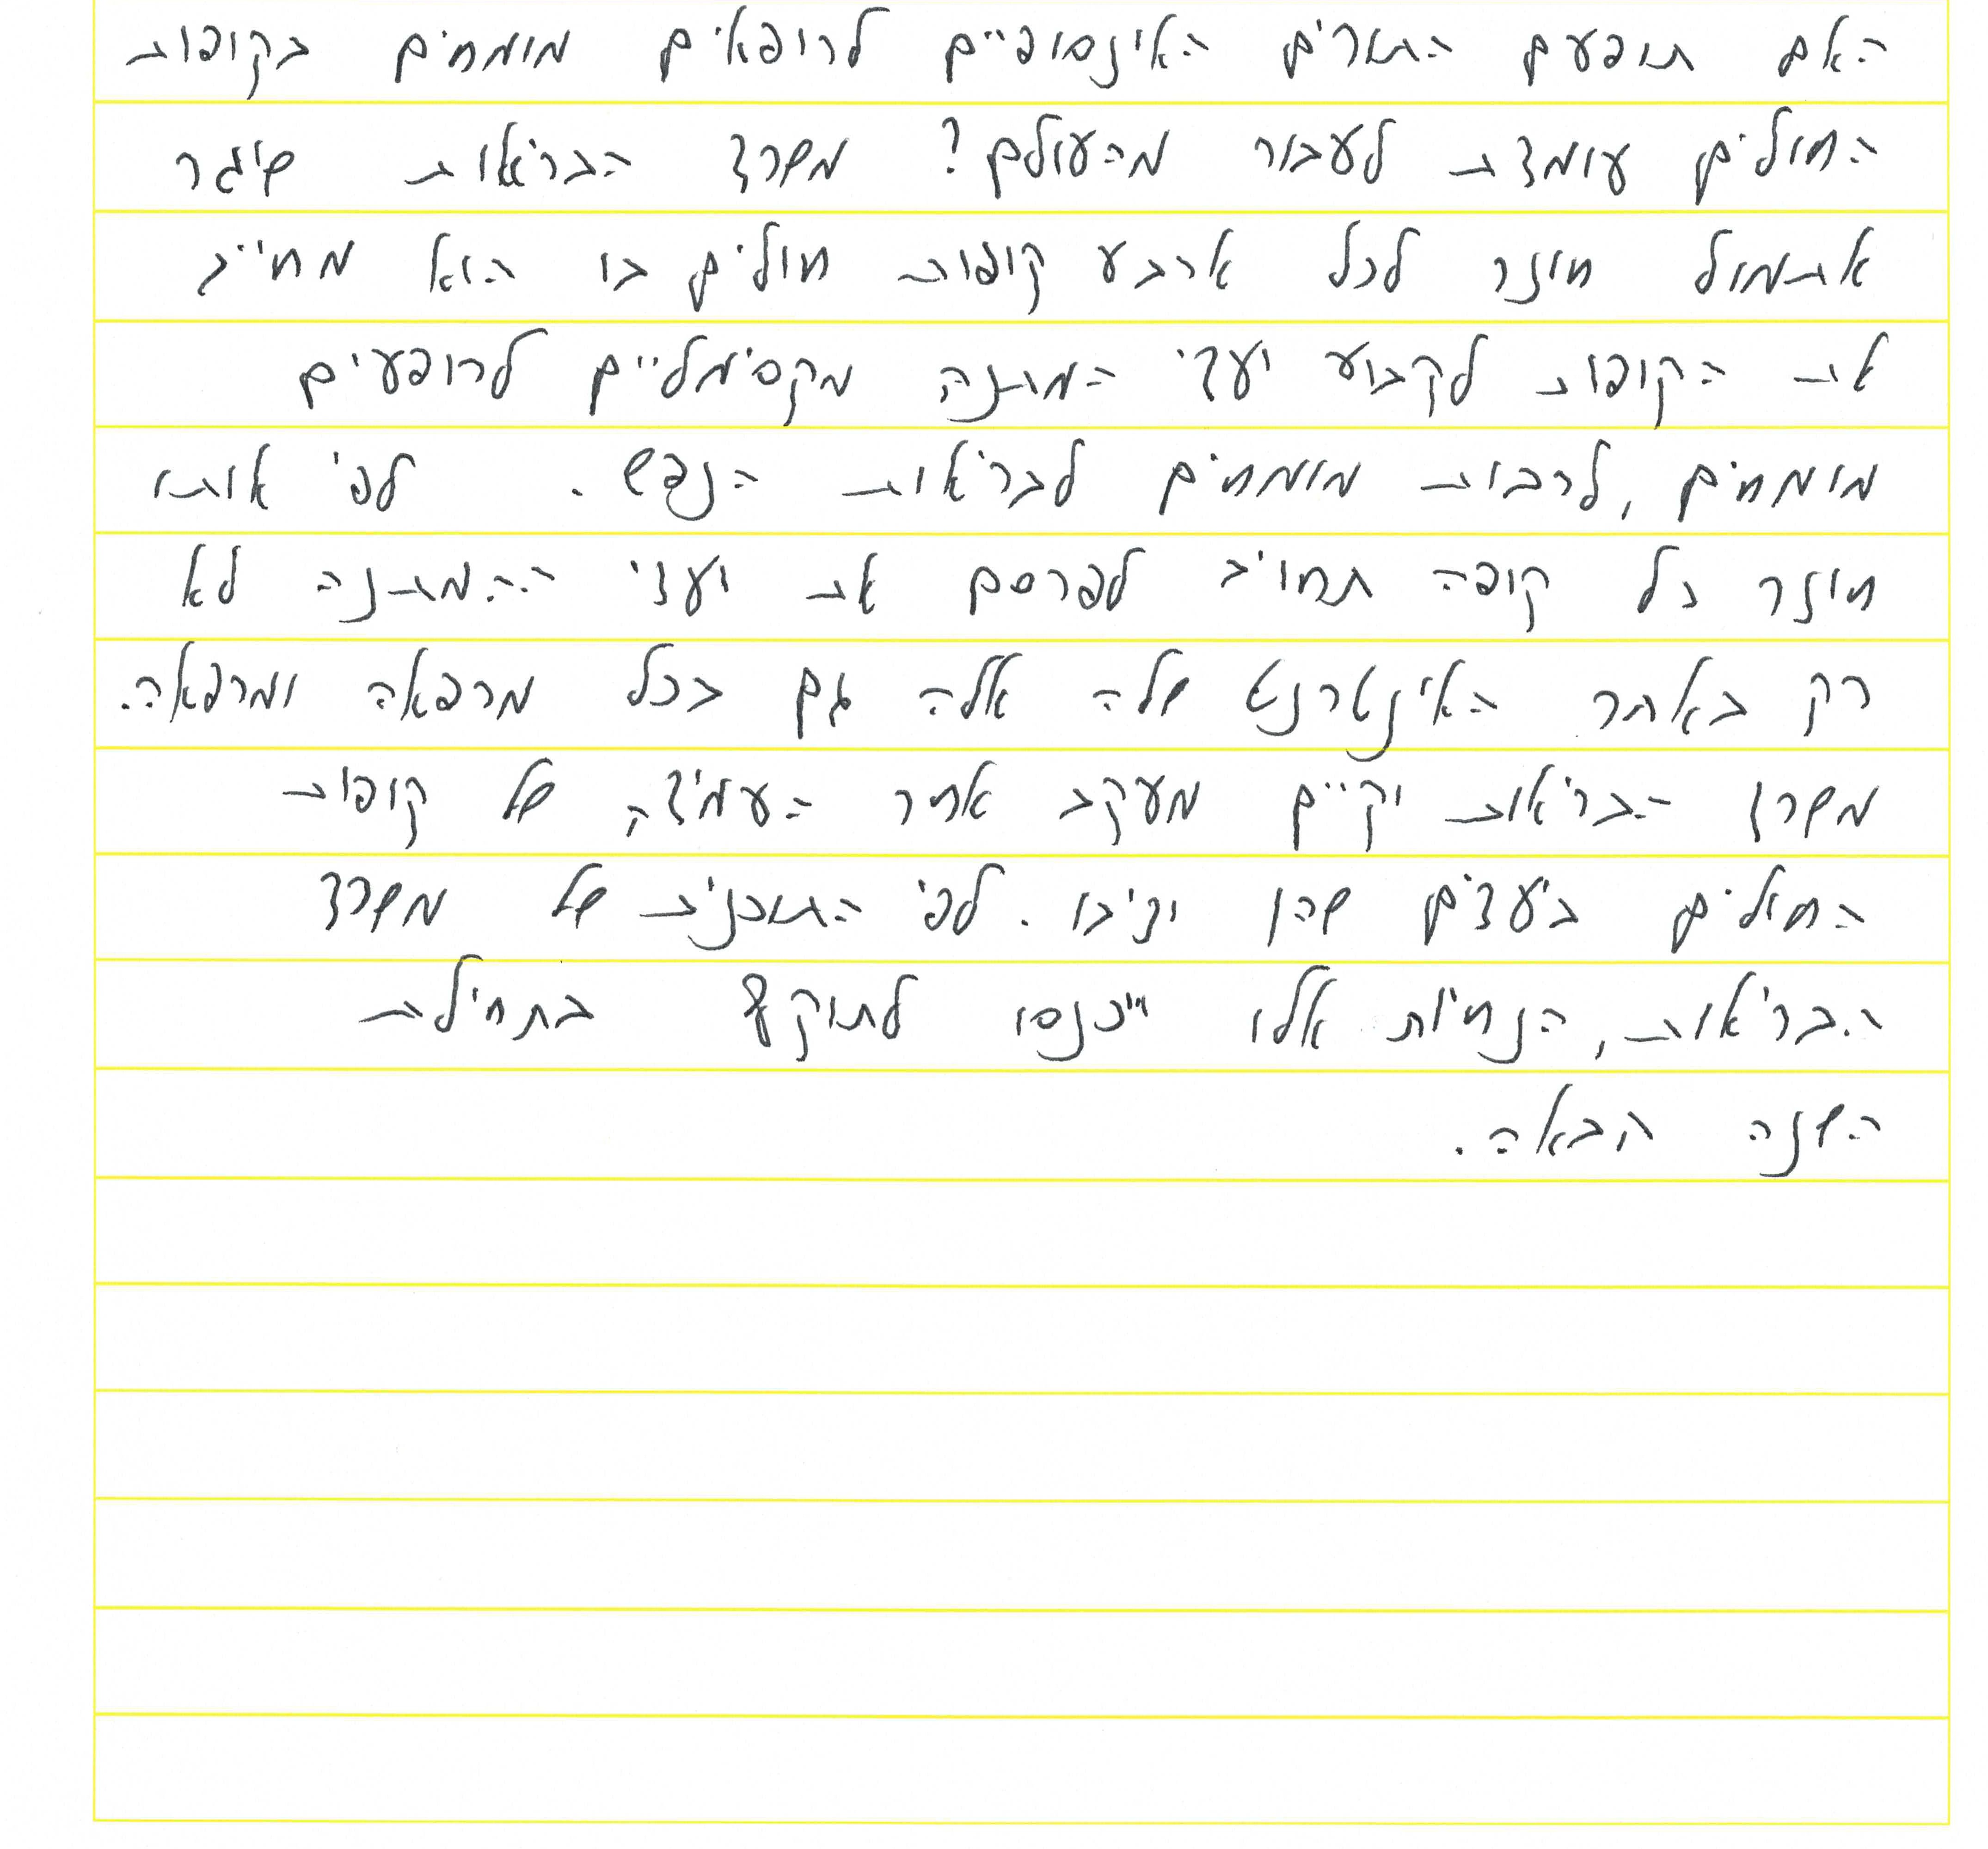 האם תופעם התורים האינסופיים לרופאים מומחים בקופות
החולים עומדת לעבור מהעולם? משרד הבריאות שיגר
אתמול חוזר לכל ארבע קופות חולים בו הוא מחייב
את הקופות לקבוע יעדי המתנה מקסימליים לרופעים
מומחים, לרבות מומחים לבריאות הנפש. לפי אותו
חוזר כל קופה תחויב לפרסם את יעדי ההמתנה לא
רק באתר האינטרנט שלה אלה גם בכל מרפאה ומרפאה.
משרד הבריאות יקיים מעקב אחר העמידה של קופות
החולים ביעדים שהן יציבו. לפי התוכנית של משרד
הבריאות, הנחיות אלו ייכנסו לתוקף בתחילת
השנה הבאה.